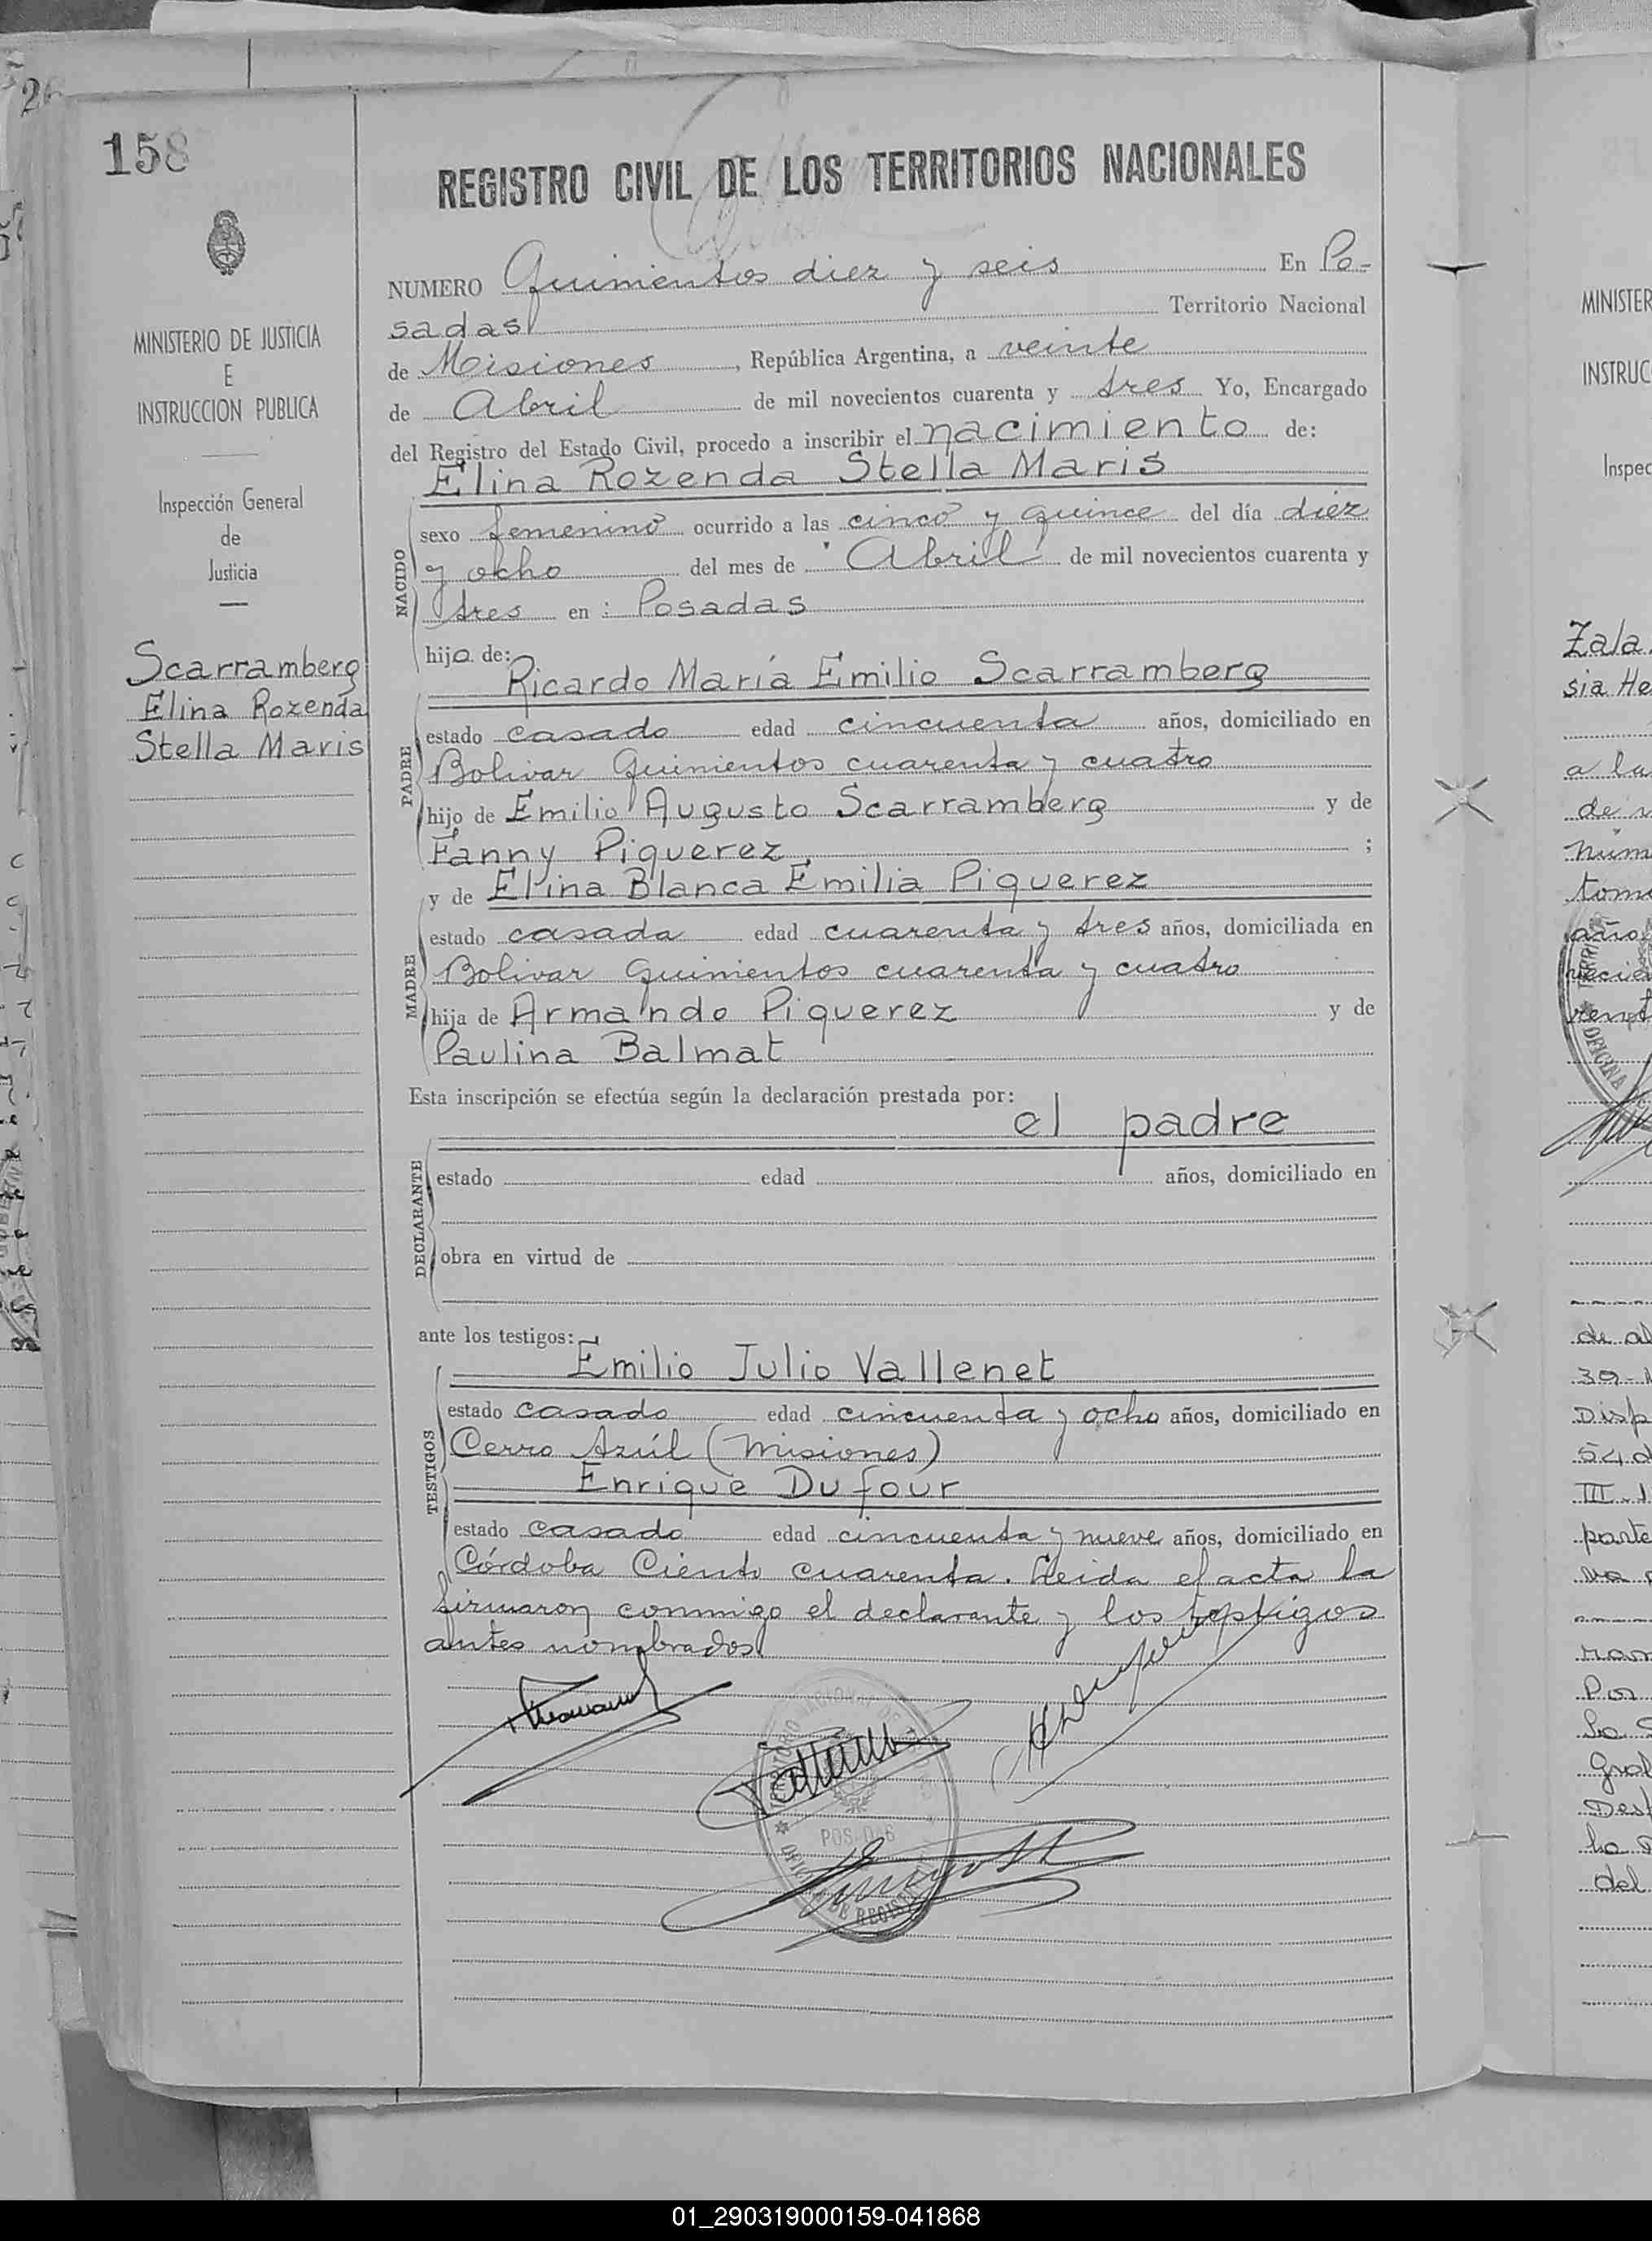 26
158
MINISTERIO DE JUSTICIA
E
INSTRUCCION PUBLICA
Inspección General
de
Justicia
Scarramberg
Elina Rozenda
Stella Maris
REGISTRO CIVIL DE LOS TERRITORIOS NACIONALES
NUMERO Quinientos diez y seis En Po-
sadas Territorio Nacional
de Misiones, República Argentina, a veinte
de Abril de mil novecientos cuarenta y tres Yo, Encargado
del Registro del Estado Civil, procedo a inscribir el nacimiento de:
Elina Rozenda Stella Maris
NACIDO
sexo femenino ocurrido a las cinco y quince del día diez
y ocho del mes de Abril de mil novecientos cuarenta y
tres en: Posadas
hija de:
Ricardo María Emilio Scarramberg
PADRE
estado casado edad cincuenta años, domiciliado en
Bolivar Quinientos cuarenta y cuatro
hijo de Emilio Augusto Scarramberg y de
Fanny Piquerez, ;
y de Elina Blanca Emilia Piquerez
MADRE
estado casada edad cuarenta y tres años, domiciliada en
Bolivar Quinientos cuarenta y cuatro
hija de Armando Piquerez y de
Paulina Balmat
Esta inscripción se efectúa según la declaración prestada por:
el padre
DECLARANTE
estado edad años, domiciliado en
obra en virtud de
ante los testigos:
Emilio Julio Vallenet
TESTIGOS
estado casado edad cincuenta y ocho años, domiciliado en
Cerro Azúl (Misiones)
Enrique Dufour
estado casado edad cincuenta y nueve años, domiciliado en
Córdoba Ciento cuarenta. Leida el acta la
firmaron conmigo el declarante y los testigos
antes nombrados
POSADAS
DE REGIST
MINISTER
INSTRUC
Inspec
Zala
sia He
a la
de
núm
tom
año
OFICINA
de al
39-
Disp
54 d
III-1
parte
Por
la
Gral
Desp
del
01_290319000159-041868